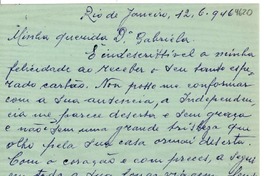 Rio de Janeiro, 12.6.946
Minha querida Dª Gabriela
E indescriptivel a minha
felicidade ao receber o seu tanto es
perado cartão. Não posso me conformar
com a sua ausencia, a Independen
cia me parece deserta e sem graça
e não sem uma grande tristeza que
olho pela sem casa
Com o coração e com preces, a segui
em toda a sua longa viagem